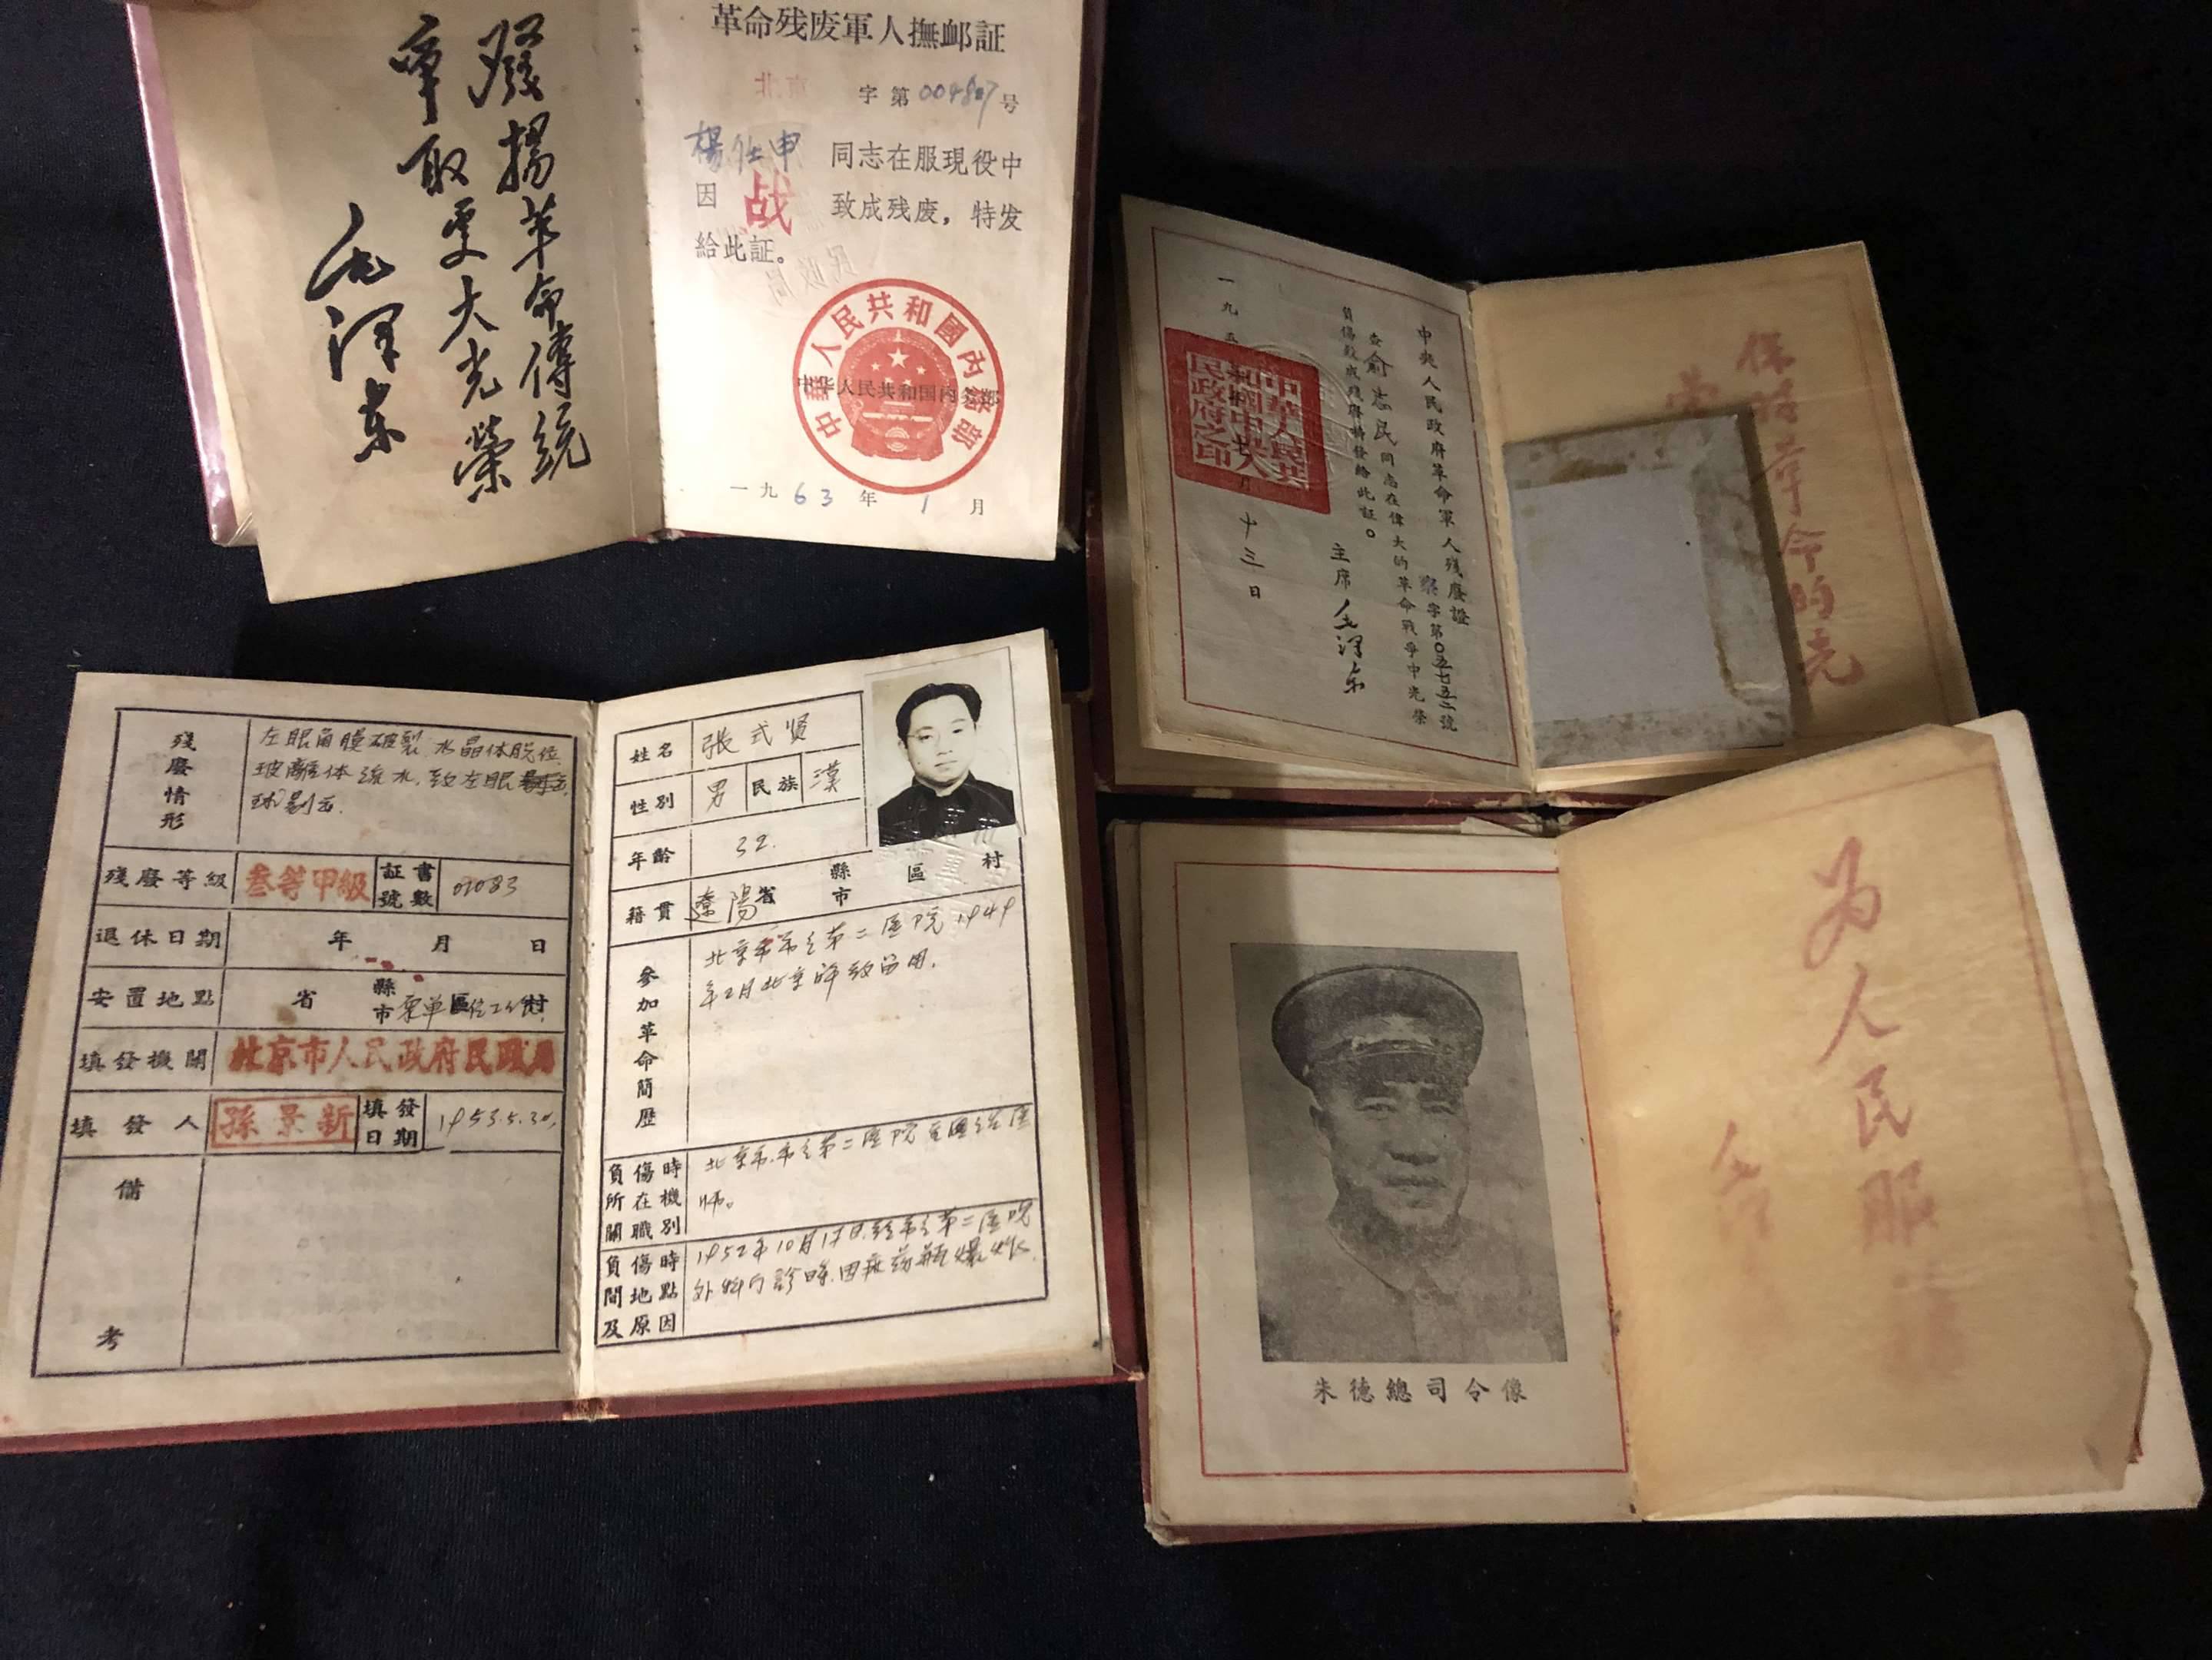 發揚革命傳統
爭取更大光榮
毛澤东
革命残废軍人撫邮証
北京 字第004887号
楊仕申 同志在服現役中
因 战 致成残废，特发
給此証。
民政局
中華人民共和國內務部
中华人民共和国内务部
一九63年1月
中央人民政府革命軍人殘廢證
字第〇五七五二號
查俞志民同志在偉大的革命戰爭中光榮
負傷致成殘廢特發給此証。
主席 毛澤东
一九五 七月十三日
中華人民共和國中央人民政府之印
保持革命的光
荣
殘廢情形
左眼角膜破裂.水晶体脱位.
玻離体流水.致左眼
球剔出.
殘廢等級 叁等甲級 証書號數 01083
退休日期 年 月 日
安置地點 省 縣市 區 村
填發機關 北京市人民政府民政局
填發人 孫景新 填發日期 1953.5.30.
備考
姓名 張式賢
性別 男 民族 漢
年齡 32.
籍貫 遼陽省 縣市 區 村
參加革命簡歷
北京市市立第二医院1949
年2月北京解放留用.
負傷時所在機關職別
北京市.市立第二医院 医
师。
負傷時間地點及原因
1952年10月17日.於市立第二医院
外科门診時.因 药瓶爆炸.
朱德總司令像
为人民服